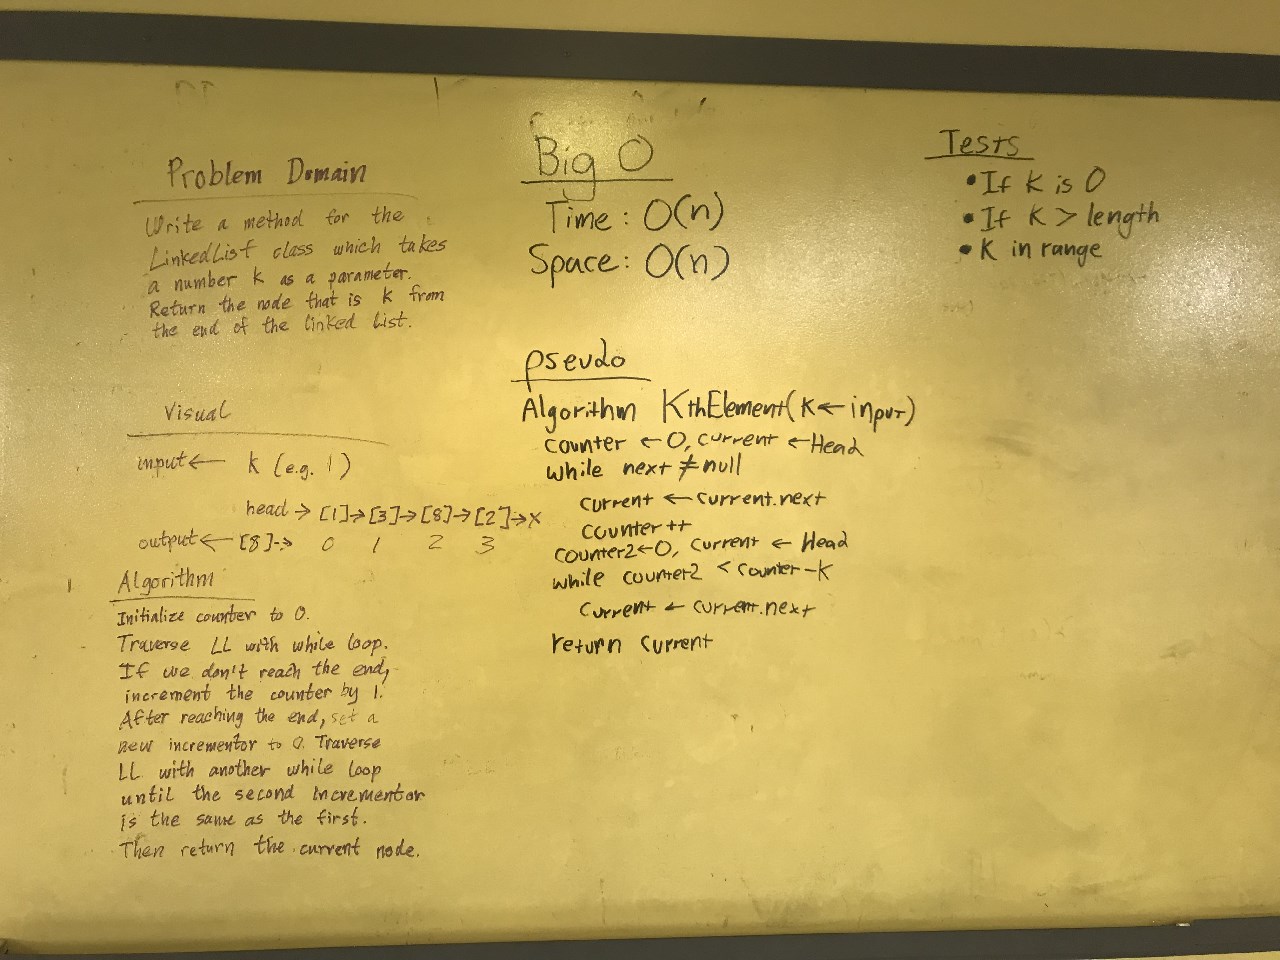 Problem Domain
Write a method for the
LinkedList class which takes
a number k as a parameter.
Return the node that is k from
the end of the linked list.
Visual
input ← k (e.g. 1)
head → [1] → [3] → [8] → [2] → X
output ← [8] -> 0 1 2 3
Algorithm
Initialize counter to 0.
Traverse LL with while loop.
If we don't reach the end,
increment the counter by 1.
After reaching the end, set a
new incrementor to 0. Traverse
LL with another while loop
until the second incrementor
is the same as the first.
Then return the current node.
Big O
Time: O(n)
Space: O(n)
pseudo
Algorithm KthElement(k ← input)
counter ← 0, current ← Head
while next ≠ null
current ← current.next
counter ++
counter2 ← 0, current ← Head
while counter2 < counter - k
current ← current.next
return current
Tests
• If k is 0
• If k > length
• k in range